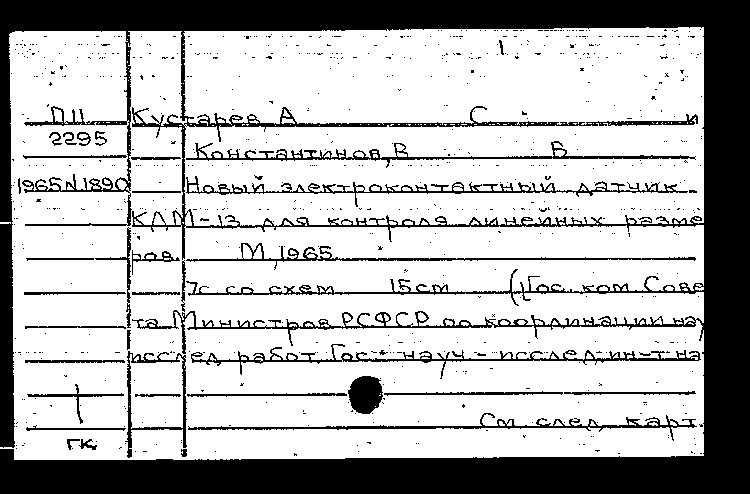 1
П11 Кустарев, А С и
2295 Константинов, В В
1965 N1890 Новый электроконтактный датчик
КДМ-13 для контроля линейных разме
ров. М, 1965
7с со схем 15см (Гос. ком. Сове
та Министров РСФСР по координации нау
исслед работ. Гос. науч-исслед. ин-т на
См след карт.
ГК